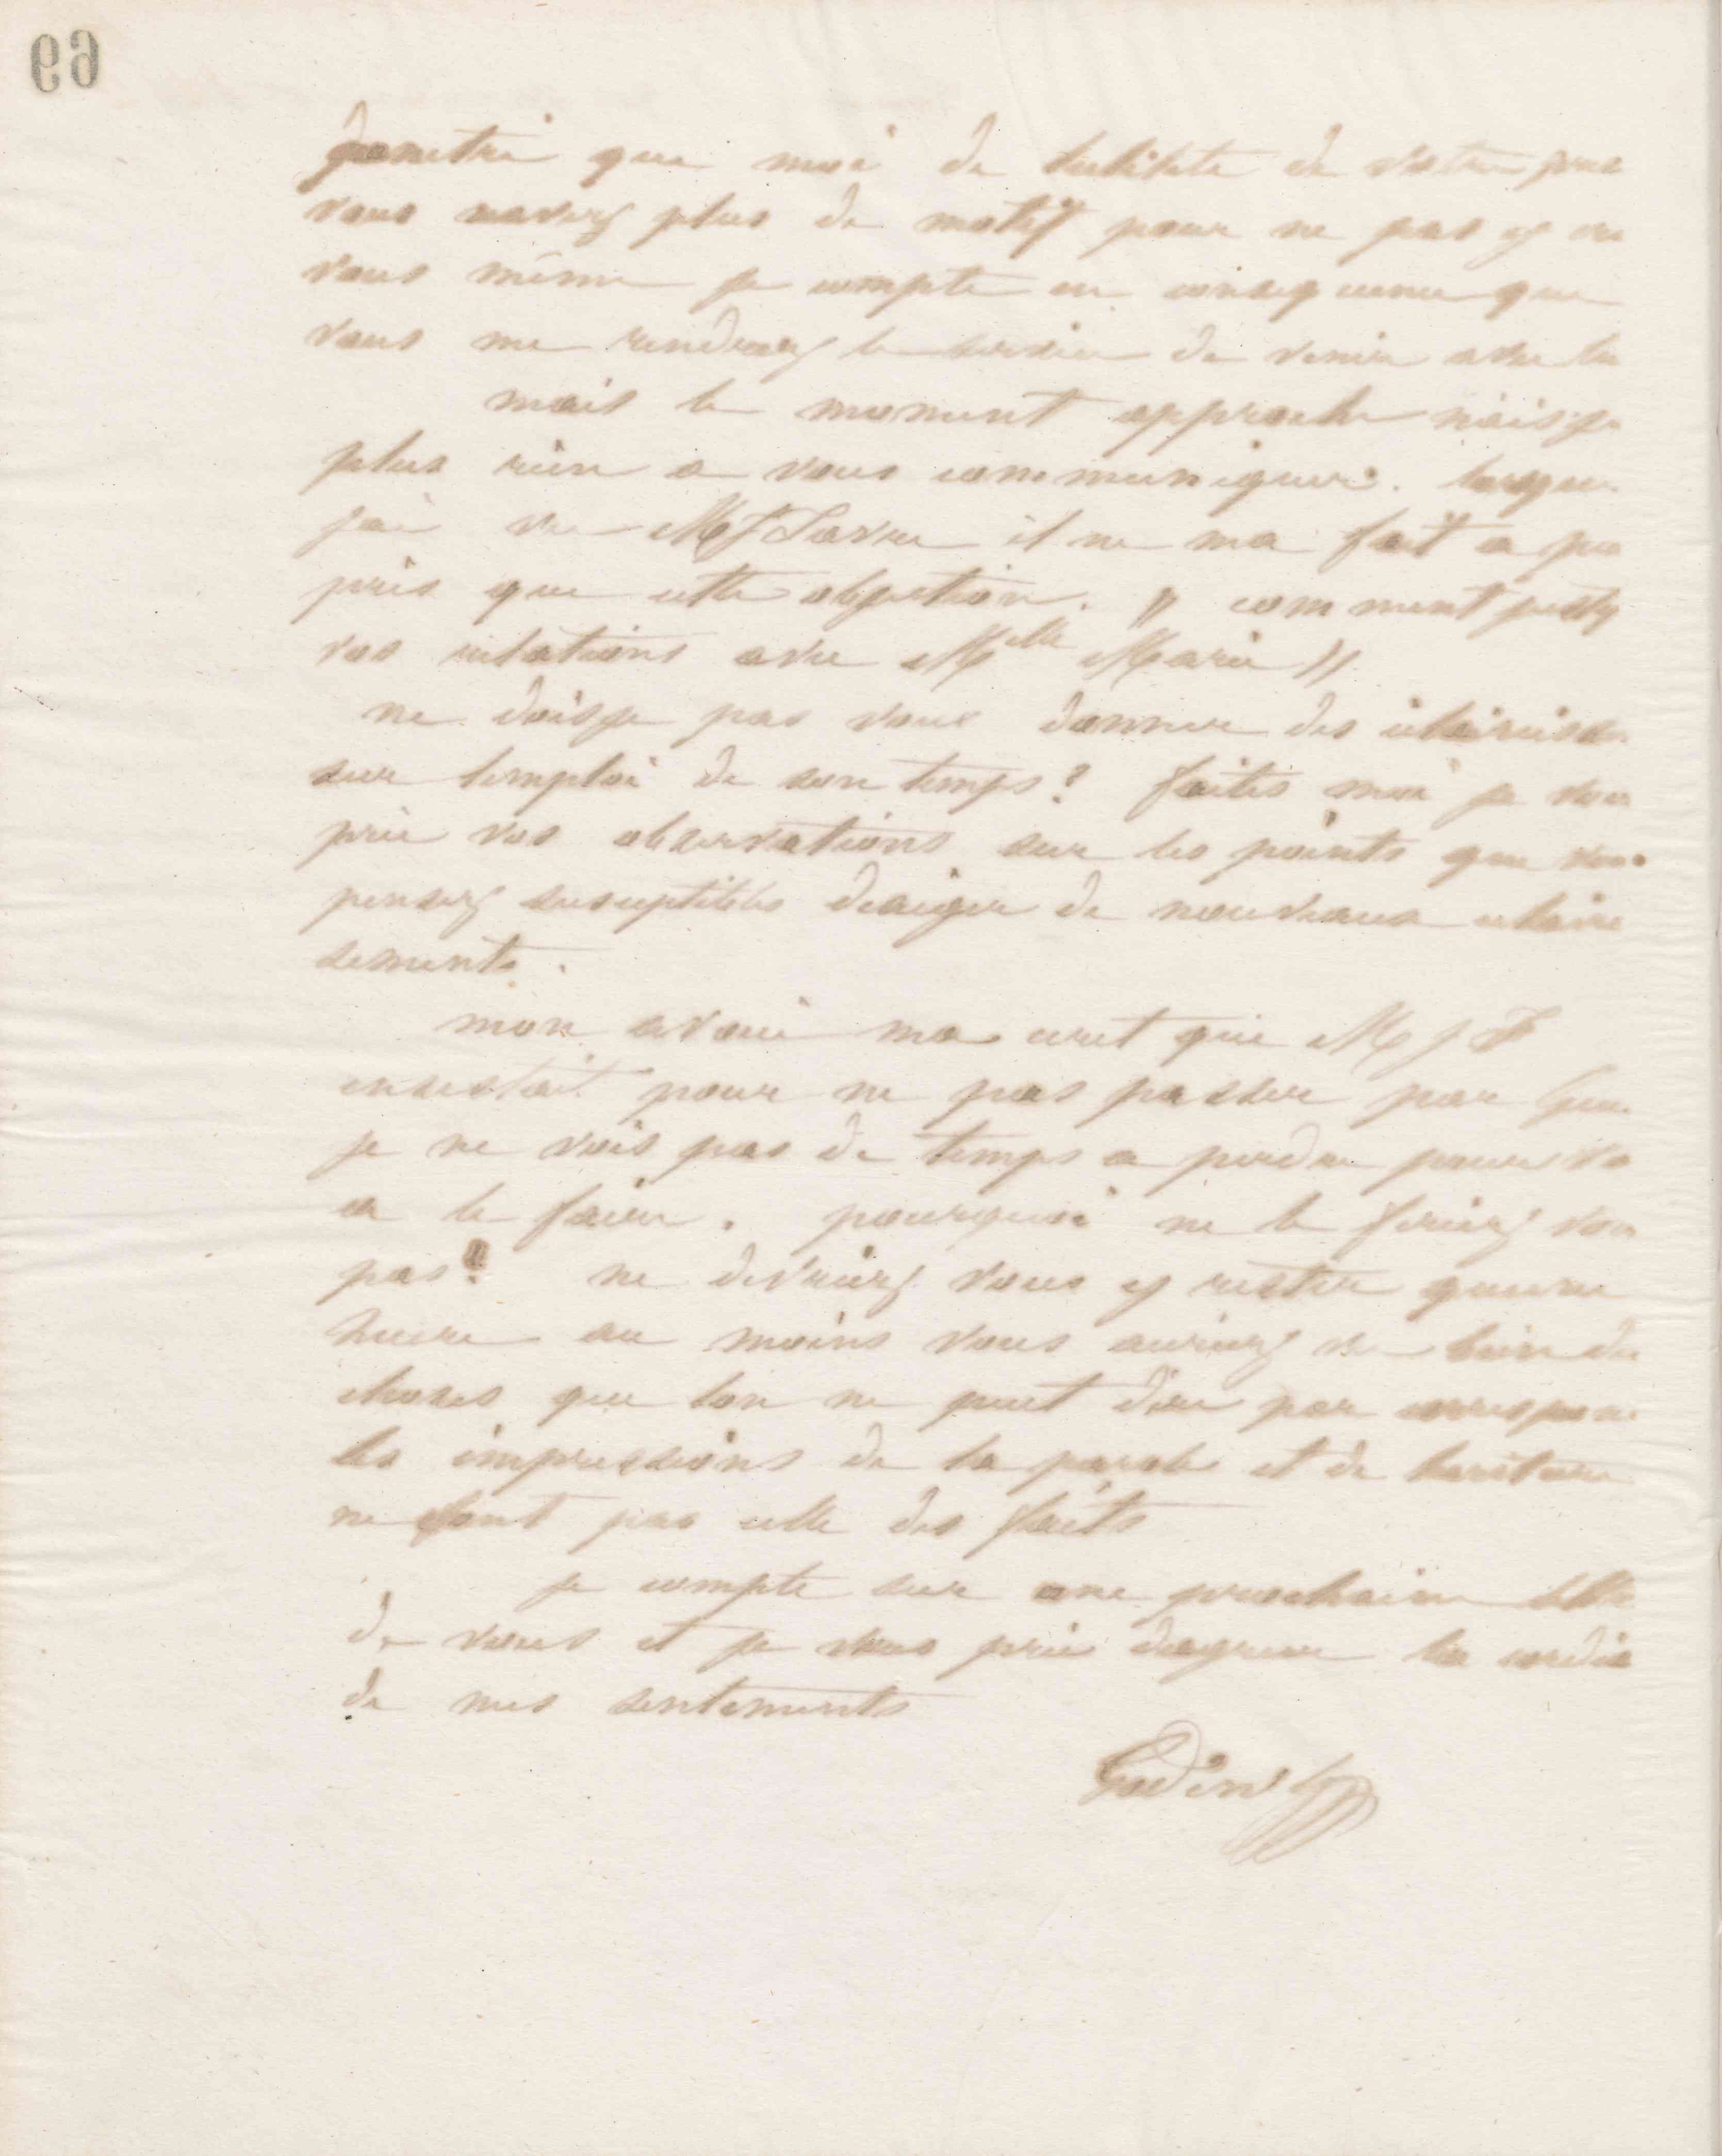 69
penetré que moi de lutilité de votre
vous navez plus de motif pour ne pas y
vous même je compte en consequence que
vous me rendrez le service de venir avec
mais le moment approche naisje
plus rien a vous communiquer. lorsque
jai vu Mr J Favre il ne ma fait a peu
près que cette objection. " comment
vos relations avec Melle Marie "
ne doisje pas vous donner des
sur lemploi de son temps? faites moi je vous
prie vos observations sur les points que vous
pensez suseptibles dexiger de nouveaux eclairci
sements.
mon avoué ma ecrit que M J F
insistait pour ne pas passer par
je ne vois pas de temps a perdre pour
a le faire. pourquoi ne le feriez vous
pas? ne devriez vous y rester quune
heure au moins vous auriez vu bien des
choses que lon ne peut dire par correspon
les impressions de la parole et de lecriture
ne font pas celle des faits
je compte sur une prochaine
de vous et je vous prie dagreer la cordia
de mes sentiments
Godin